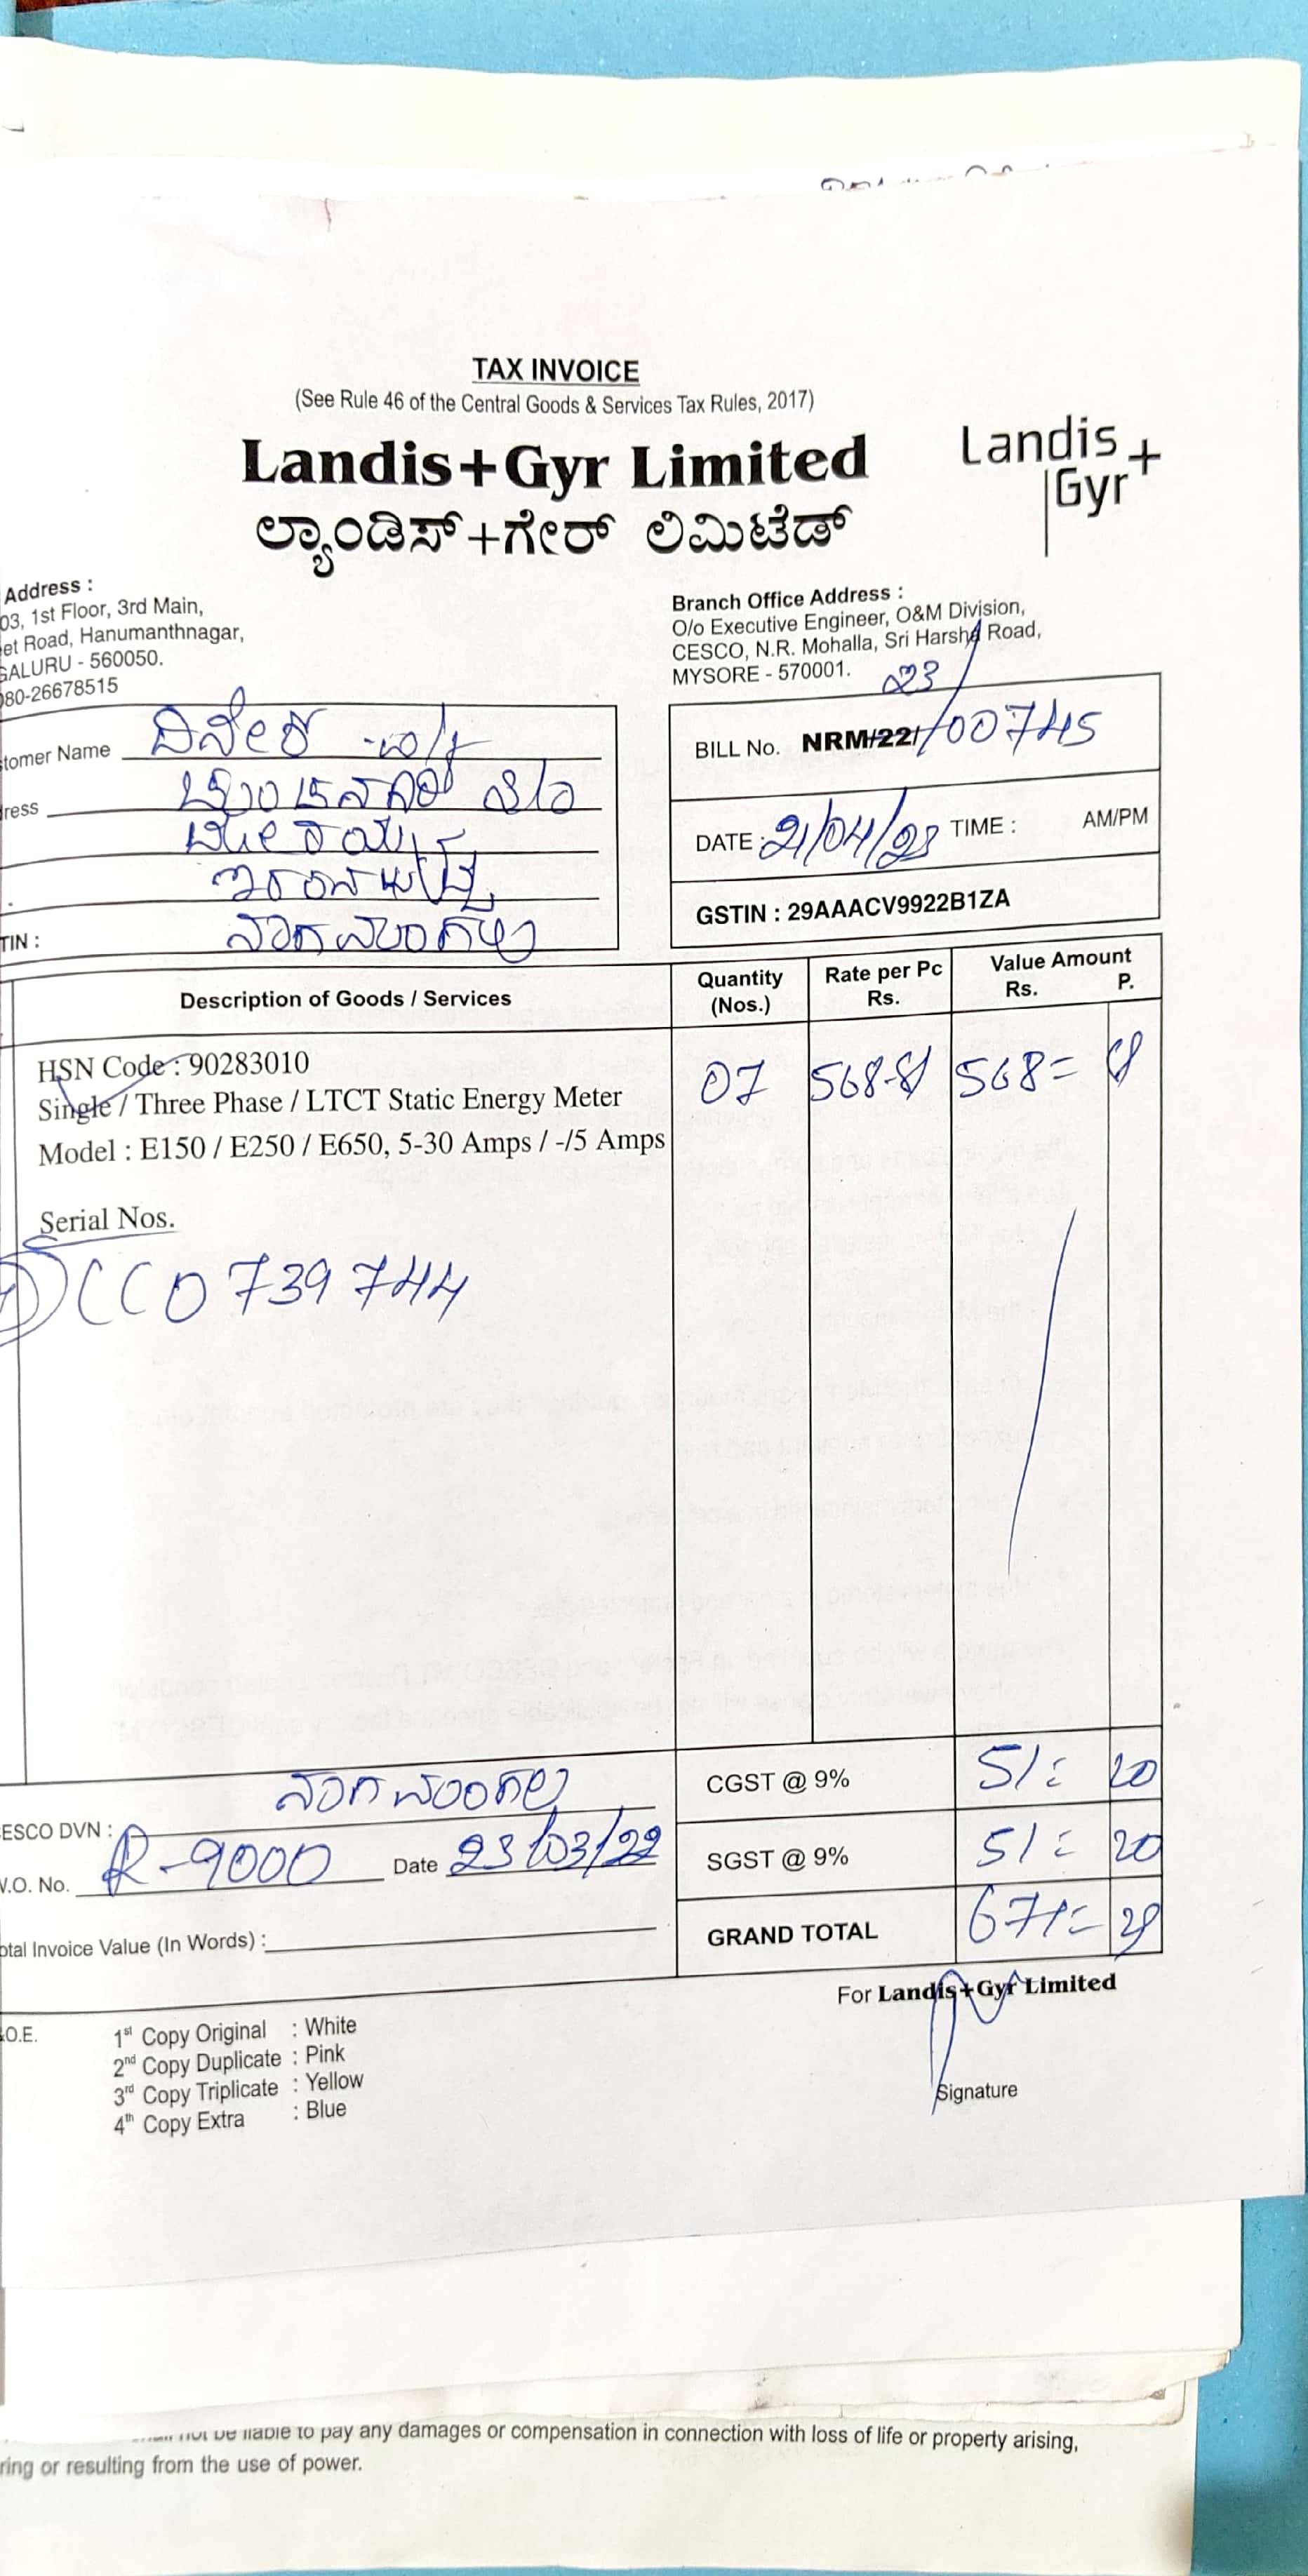 TAX INVOICE
(See Rule 46 of the Central Goods & Services Tax Rules, 2017)
Landis+Gyr Limited
ಲ್ಯಾಂಡಿಸ್+ಗೇರ್ ಲಿಮಿಟೆಡ್
Landis+
Gyr
Address :
03, 1st Floor, 3rd Main,
et Road, Hanumanthnagar,
GALURU - 560050.
080-26678515
Branch Office Address :
O/o Executive Engineer, O&M Division,
CESCO, N.R. Mohalla, Sri Harsha Road,
MYSORE - 570001.
tomer Name
ress
TIN : ನಾಗಮಂಗಲ
23
BILL No. NRM/22/ /00745
DATE : 21/04/23 TIME : AM/PM
GSTIN : 29AAACV9922B1ZA
Description of Goods / Services
Quantity (Nos.)
Rate per Pc Rs.
Value Amount
Rs. P.
HSN Code : 90283010
Single / Three Phase / LTCT Static Energy Meter
Model : E150 / E250 / E650, 5-30 Amps / -/5 Amps
07 568 568=
Serial Nos.
CC0739744
CGST @ 9% 51= 20
SGST @ 9% 51= 20
GRAND TOTAL 671=
ESCO DVN : ನಾಗಮಂಗಲ
V.O. No. R-9000 Date 23/03/22
otal Invoice Value (In Words) :
For Landis+Gyr Limited
Signature
.O.E.
1st Copy Original : White
2nd Copy Duplicate : Pink
3rd Copy Triplicate : Yellow
4th Copy Extra : Blue
not be liable to pay any damages or compensation in connection with loss of life or property arising,
ring or resulting from the use of power.